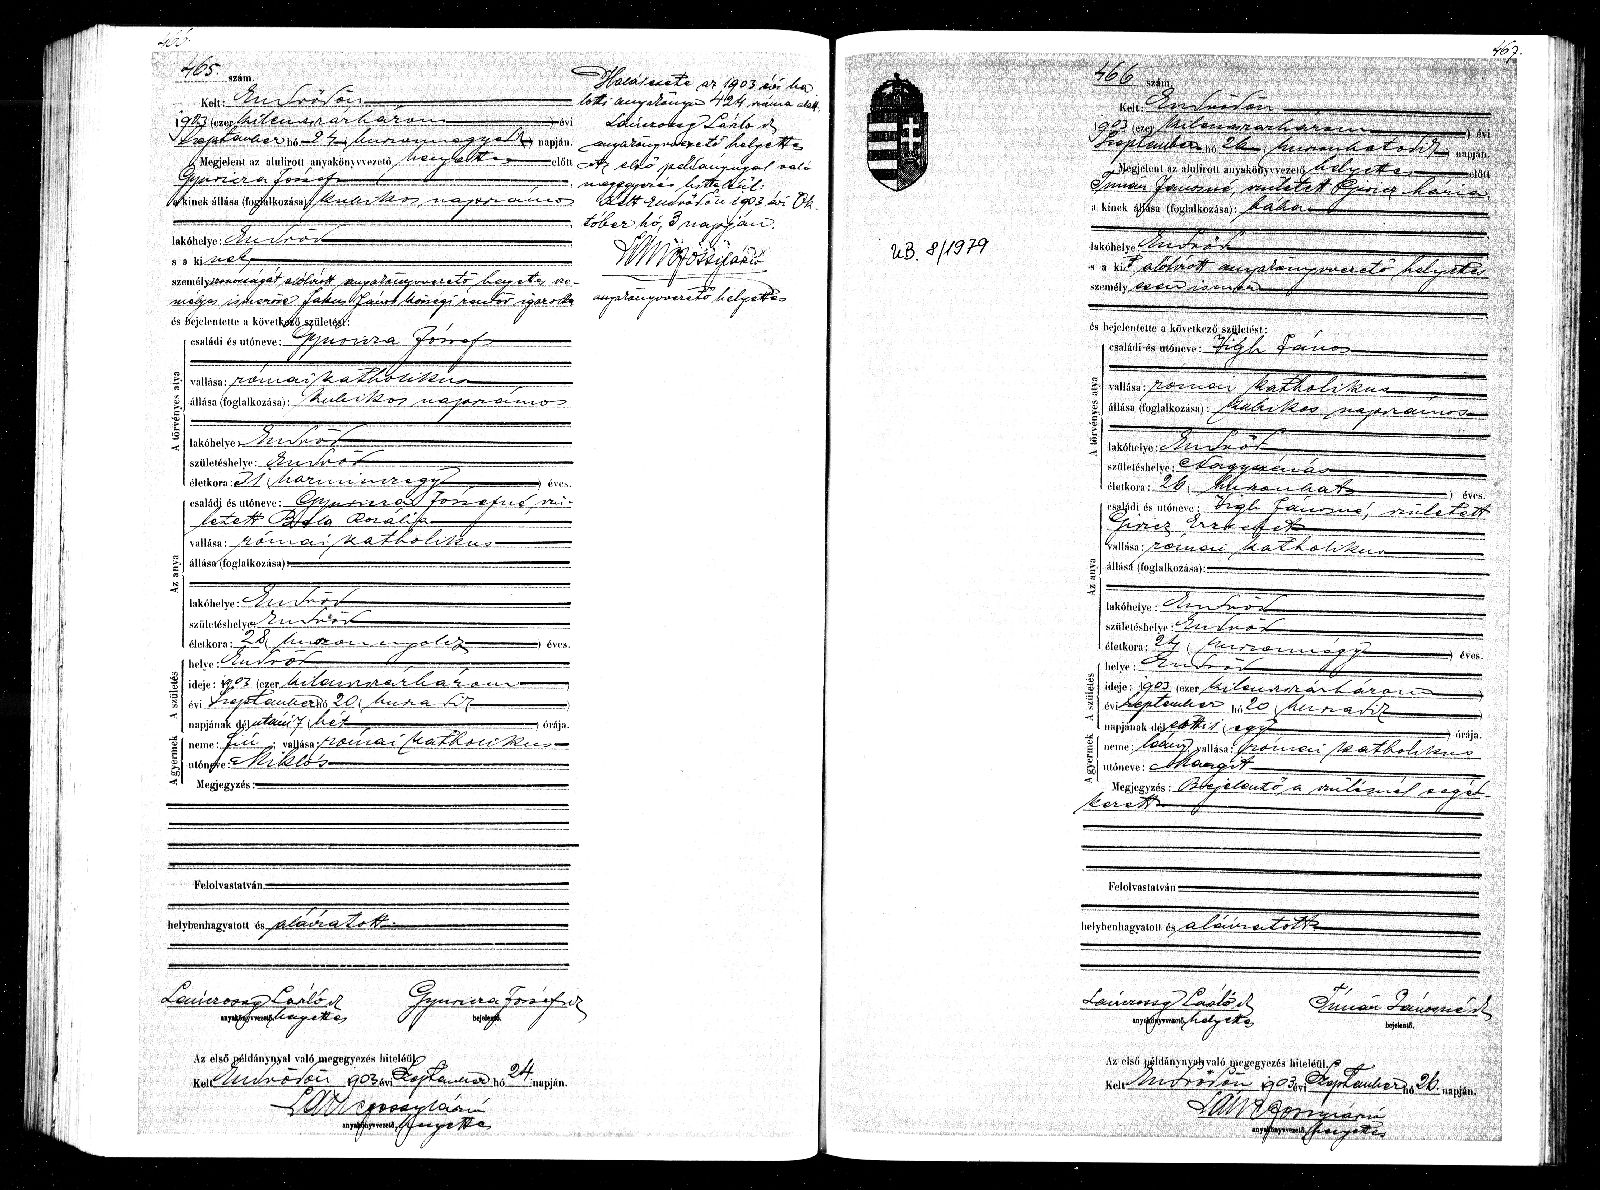 466.
465. szám.
Kelt: Endrődön
1903 (ezer kilenczszázhárom) évi
Szeptember hó 24 (huszonnegyedik) napján.
Megjelent az alulirott anyakönyvvezető helyettes előtt
Gyuricza József
a kinek állása (foglalkozása): kubikos napszámos
lakóhelye: Endrőd
s a ki nek
személyazonosságát alólirott anyakönyvvezető helyettes sze-
mélyes ismerőse János községi rendőr igazolta
és bejelentette a következő születést:
A törvényes atya
családi és utóneve: Gyuricza József
vallása: római katholikus
állása (foglalkozása): kubikos napszámos
lakóhelye: Endrőd
születéshelye: Endrőd
életkora: 31 (harminczegy) éves.
Az anya
családi és utóneve: Gyuricza Józsefné, szü-
letett Béla Rozália
vallása: római katholikus
állása (foglalkozása):
lakóhelye: Endrőd
születéshelye: Endrőd
életkora: 28 (huszonnyolcz) éves.
A születés
helye: Endrőd
ideje: 1903 (ezer kilenczszázhárom)
évi Szeptember hó 20 (huszadik)
napjának dél utáni 7 (hét) órája.
A gyermek
neme: fiú vallása: római katholikus
utóneve: Miklós
Megjegyzés:
Felolvastatván
helybenhagyatott és aláiratott
Gyuricza József
anyakönyvvezető, helyettes bejelentő.
Az első példánynyal való megegyezés hiteléül.
Kelt Endrődön 1903 évi Szeptember hó 24 napján.
anyakönyvvezető, helyettes
Halálesete az 1903 évi ha-
lotti anyakönyv 424 száma alatt.
László
anyakönyvvezető helyettes
Az első példánynyal való
megegyezés hiteléül.
Kelt Endrődön 1903 évi Ok-
tóber hó 3 napján.
anyakönyvvezető helyettes
467.
UB. 8/1979
466 szám
Kelt: Endrődön
1903 (ezer kilenczszázhárom) évi
Szeptember hó 26 (huszonhatodik) napján.
Megjelent az alulirott anyakönyvvezető helyettes előtt
Jánosné, született Mária
a kinek állása (foglalkozása): bába
lakóhelye Endrőd
s a kit alólirott anyakönyvvezető helyettes
személyesen ismer
és bejelentette a következő születést:
A törvényes atya
családi és utóneve: Vigh János
vallása: római katholikus
állása (foglalkozása): kubikos napszámos
lakóhelye: Endrőd
születéshelye: Nagyszénás
életkora: 26 (huszonhat) éves.
Az anya
családi és utóneve: Vigh Jánosné, született
Erzsébet
vallása: római katholikus
állása (foglalkozása):
lakóhelye: Endrőd
születéshelye: Endrőd
életkora: 24 (huszonnégy) éves.
A születés
helye: Endrőd
ideje: 1903 (ezer kilenczszázhárom)
évi szeptember hó 20 (huszadik)
napjának dél előtti 1 (egy) órája.
A gyermek
neme: leány vallása: római katholikus
utóneve: Margit
Megjegyzés: Bejelentő a szülésnél segéd-
kezett
Felolvastatván
helybenhagyatott és aláiratott
Jánosné
anyakönyvvezető, helyettes bejelentő.
Az első példánynyal való megegyezés hiteléül.
Kelt Endrődön 1903 évi Szeptember hó 26 napján.
anyakönyvvezető, helyettes